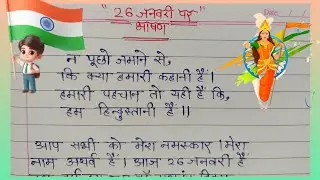 "26 जनवरी पर"
भाषण
न पूछो जमाने से,
कि क्या हमारी कहानी हैं।
हमारी पहचान तो यही हैं कि,
हम हिन्दुस्तानी हैं।।
आप सभी को मेरा नमस्कार। मेरा
नाम अथर्व हैं। आज 26 जनवरी हैं